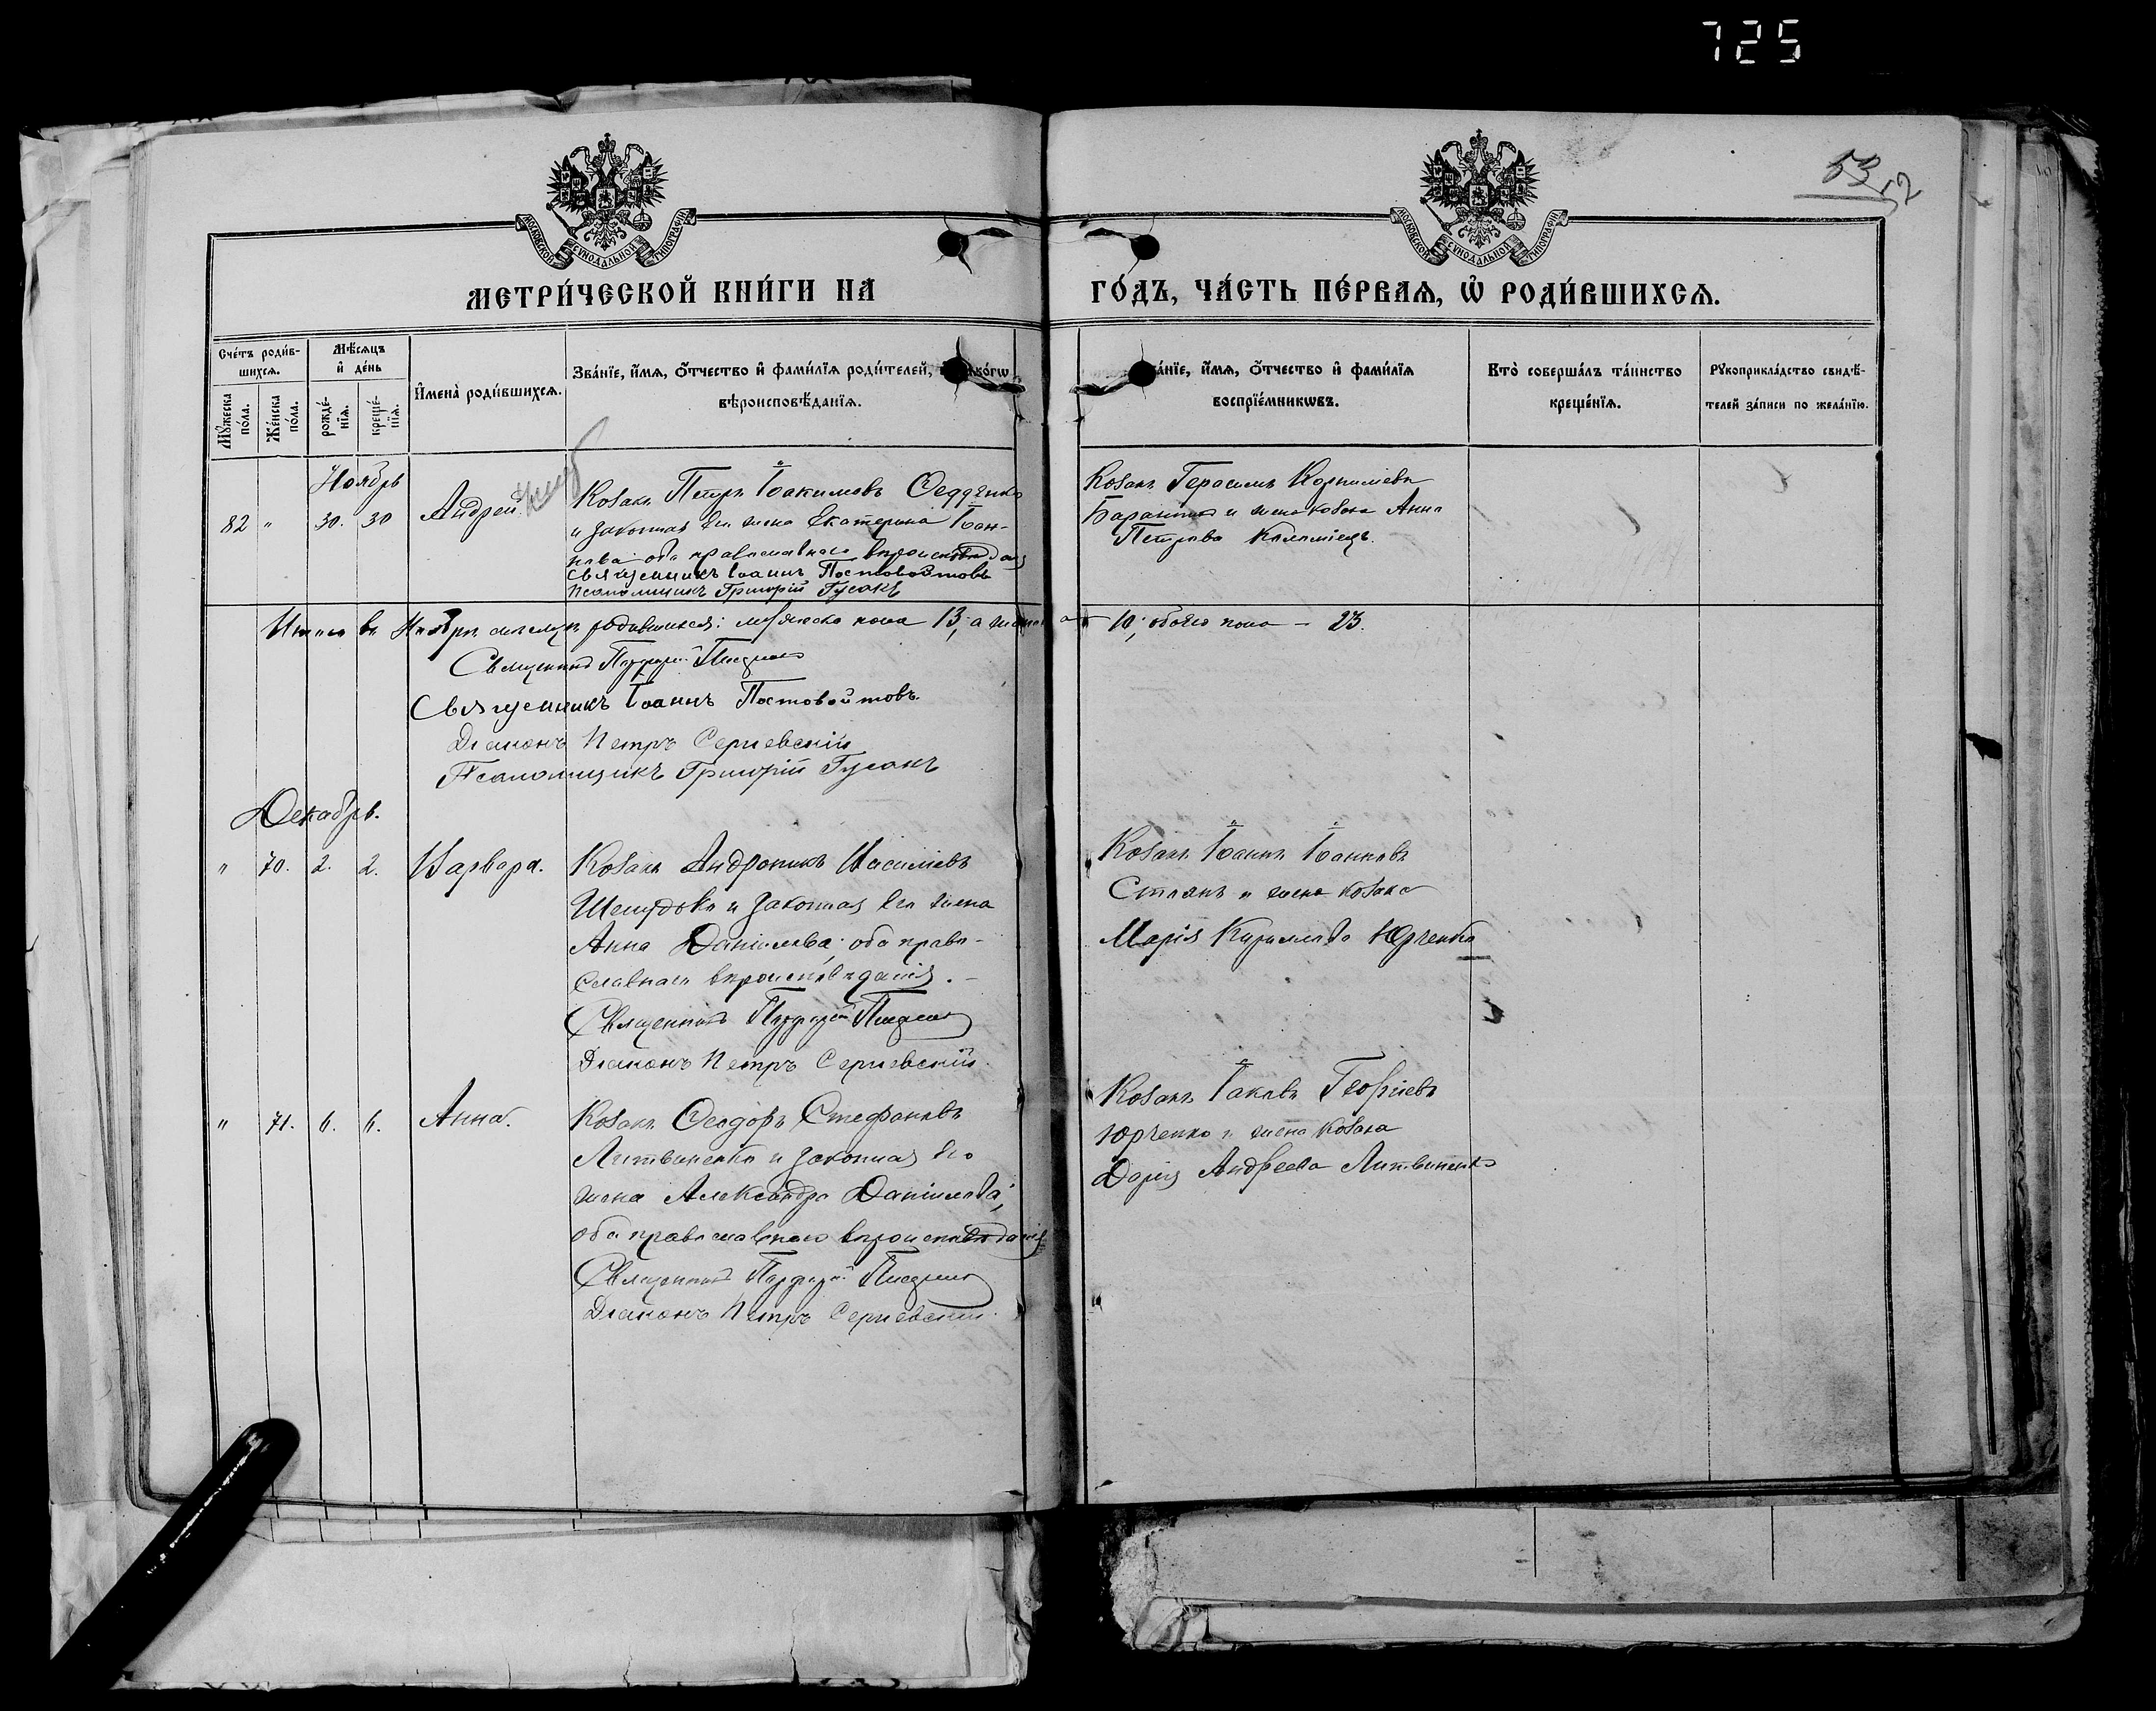 725
53 52
МОСКОВСКОЙ СѴНОДАЛЬНОЙ ТИПОГРАФІИ
МОСКОВСКОЙ СѴНОДАЛЬНОЙ ТИПОГРАФІИ
МЕТРИ́ЧЕСКОЙ КНИ́ГИ НА ГО́ДЪ, ЧА́СТЬ ПЕ́РВАѦ, Ѡ҆ РОДИ́ВШИХСѦ.
Сче́тъ роди́в-
шихсѧ.
Мꙋ́жеска по́ла.
Же́нска по́ла.
Мѣ́сѧцъ
и҆ де́нь
рожде́-
нїѧ.
креще́-
нїѧ.
И҆мена̀ роди́вшихсѧ.
Зва́нїе, и҆́мѧ, ѻ҆́тчество и҆ фами́лїѧ роди́телей, и҆ како́гѡ
вѣроисповѣ́данїѧ.
а́нїе, и҆́мѧ, ѻ҆́тчество и҆ фами́лїѧ
воспрїе́мникѡвъ.
Кто̀ соверша́лъ та́инство
креще́нїѧ.
Рꙋкоприкла́дство свидѣ́-
телей за́писи по жела́нїю.
Ноябрь
82 " 30. 30 Андрей
Козакъ Петръ Іоакимовъ Ѳедченко
и законная его жена Екатерина Іоан-
нова оба православнаго вѣроисповѣданія
Священникъ Іоаннъ Постовойтовъ
Псаломщикъ Григорій Гусакъ
Козакъ Герасимъ Корнилиевъ
и жена козака Анна
Петрова Коломіецъ.
Итого въ Ноябрѣ мѣсяцѣ родившихся: мужеска пола 13, а женска 10; обоего пола – 23.
Священникъ
Священникъ Іоаннъ Постовойтовъ.
Діаконъ Петръ Сергиевскій
Псаломщикъ Григорій Гусакъ
Декабрь.
" 70. 2. 2. Варвара.
Козакъ Андроникъ Василіевъ
и законная его жена
Анна Даніилова; оба право-
славнаго вѣроисповѣданія. –
Священникъ
Діаконъ Петръ Сергиевскій.
Козакъ Іоаннъ Іоанновъ
и жена козака
Марія Кириллова Юрченко
" 71. 6. 6. Анна.
Козакъ Ѳеодоръ Стефановъ
Литвиненко и законная его
жена Александра Даніилова;
оба православнаго вѣроисповѣданія
Священникъ
Діаконъ Петръ Сергиевскій.
Козакъ Іаковъ Георгіевъ
Юрченко и жена козака
Дарія Андреева Литвиненко